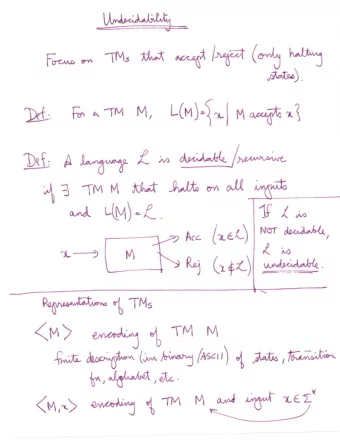 Undecidability
Focus on TMs that accept/reject (only halting
states).
Def: For a TM M, L(M)={x | M accepts x}
Def: A language L is decidable/recursive
if ∃ TM M that halts on all inputs
and L(M)=L.
If L is
NOT decidable,
L is
undecidable.
x → M
→ Acc (x∈L)
→ Rej (x∉L)
Representations of TMs
<M> encoding of TM M
finite description (in binary/ASCII) of states, transition
fn, alphabet, etc.
<M,x> encoding of TM M and input x∈Σ*